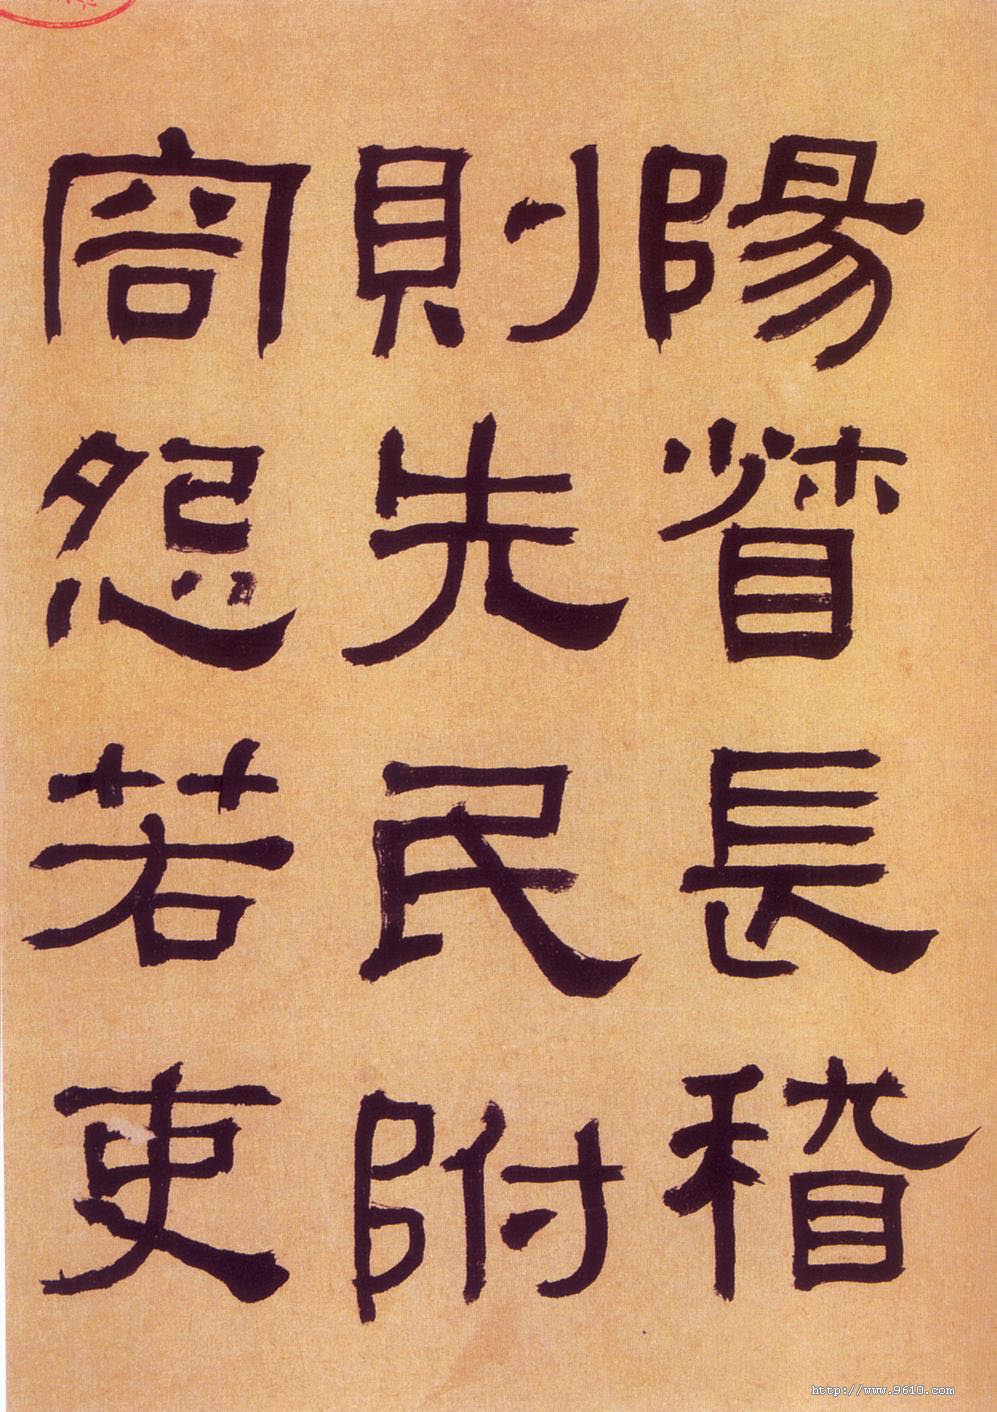 陽督長稽
則先民附
容怨若吏
http://www.9610.com